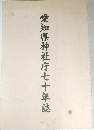 愛知県神社庁七十年誌